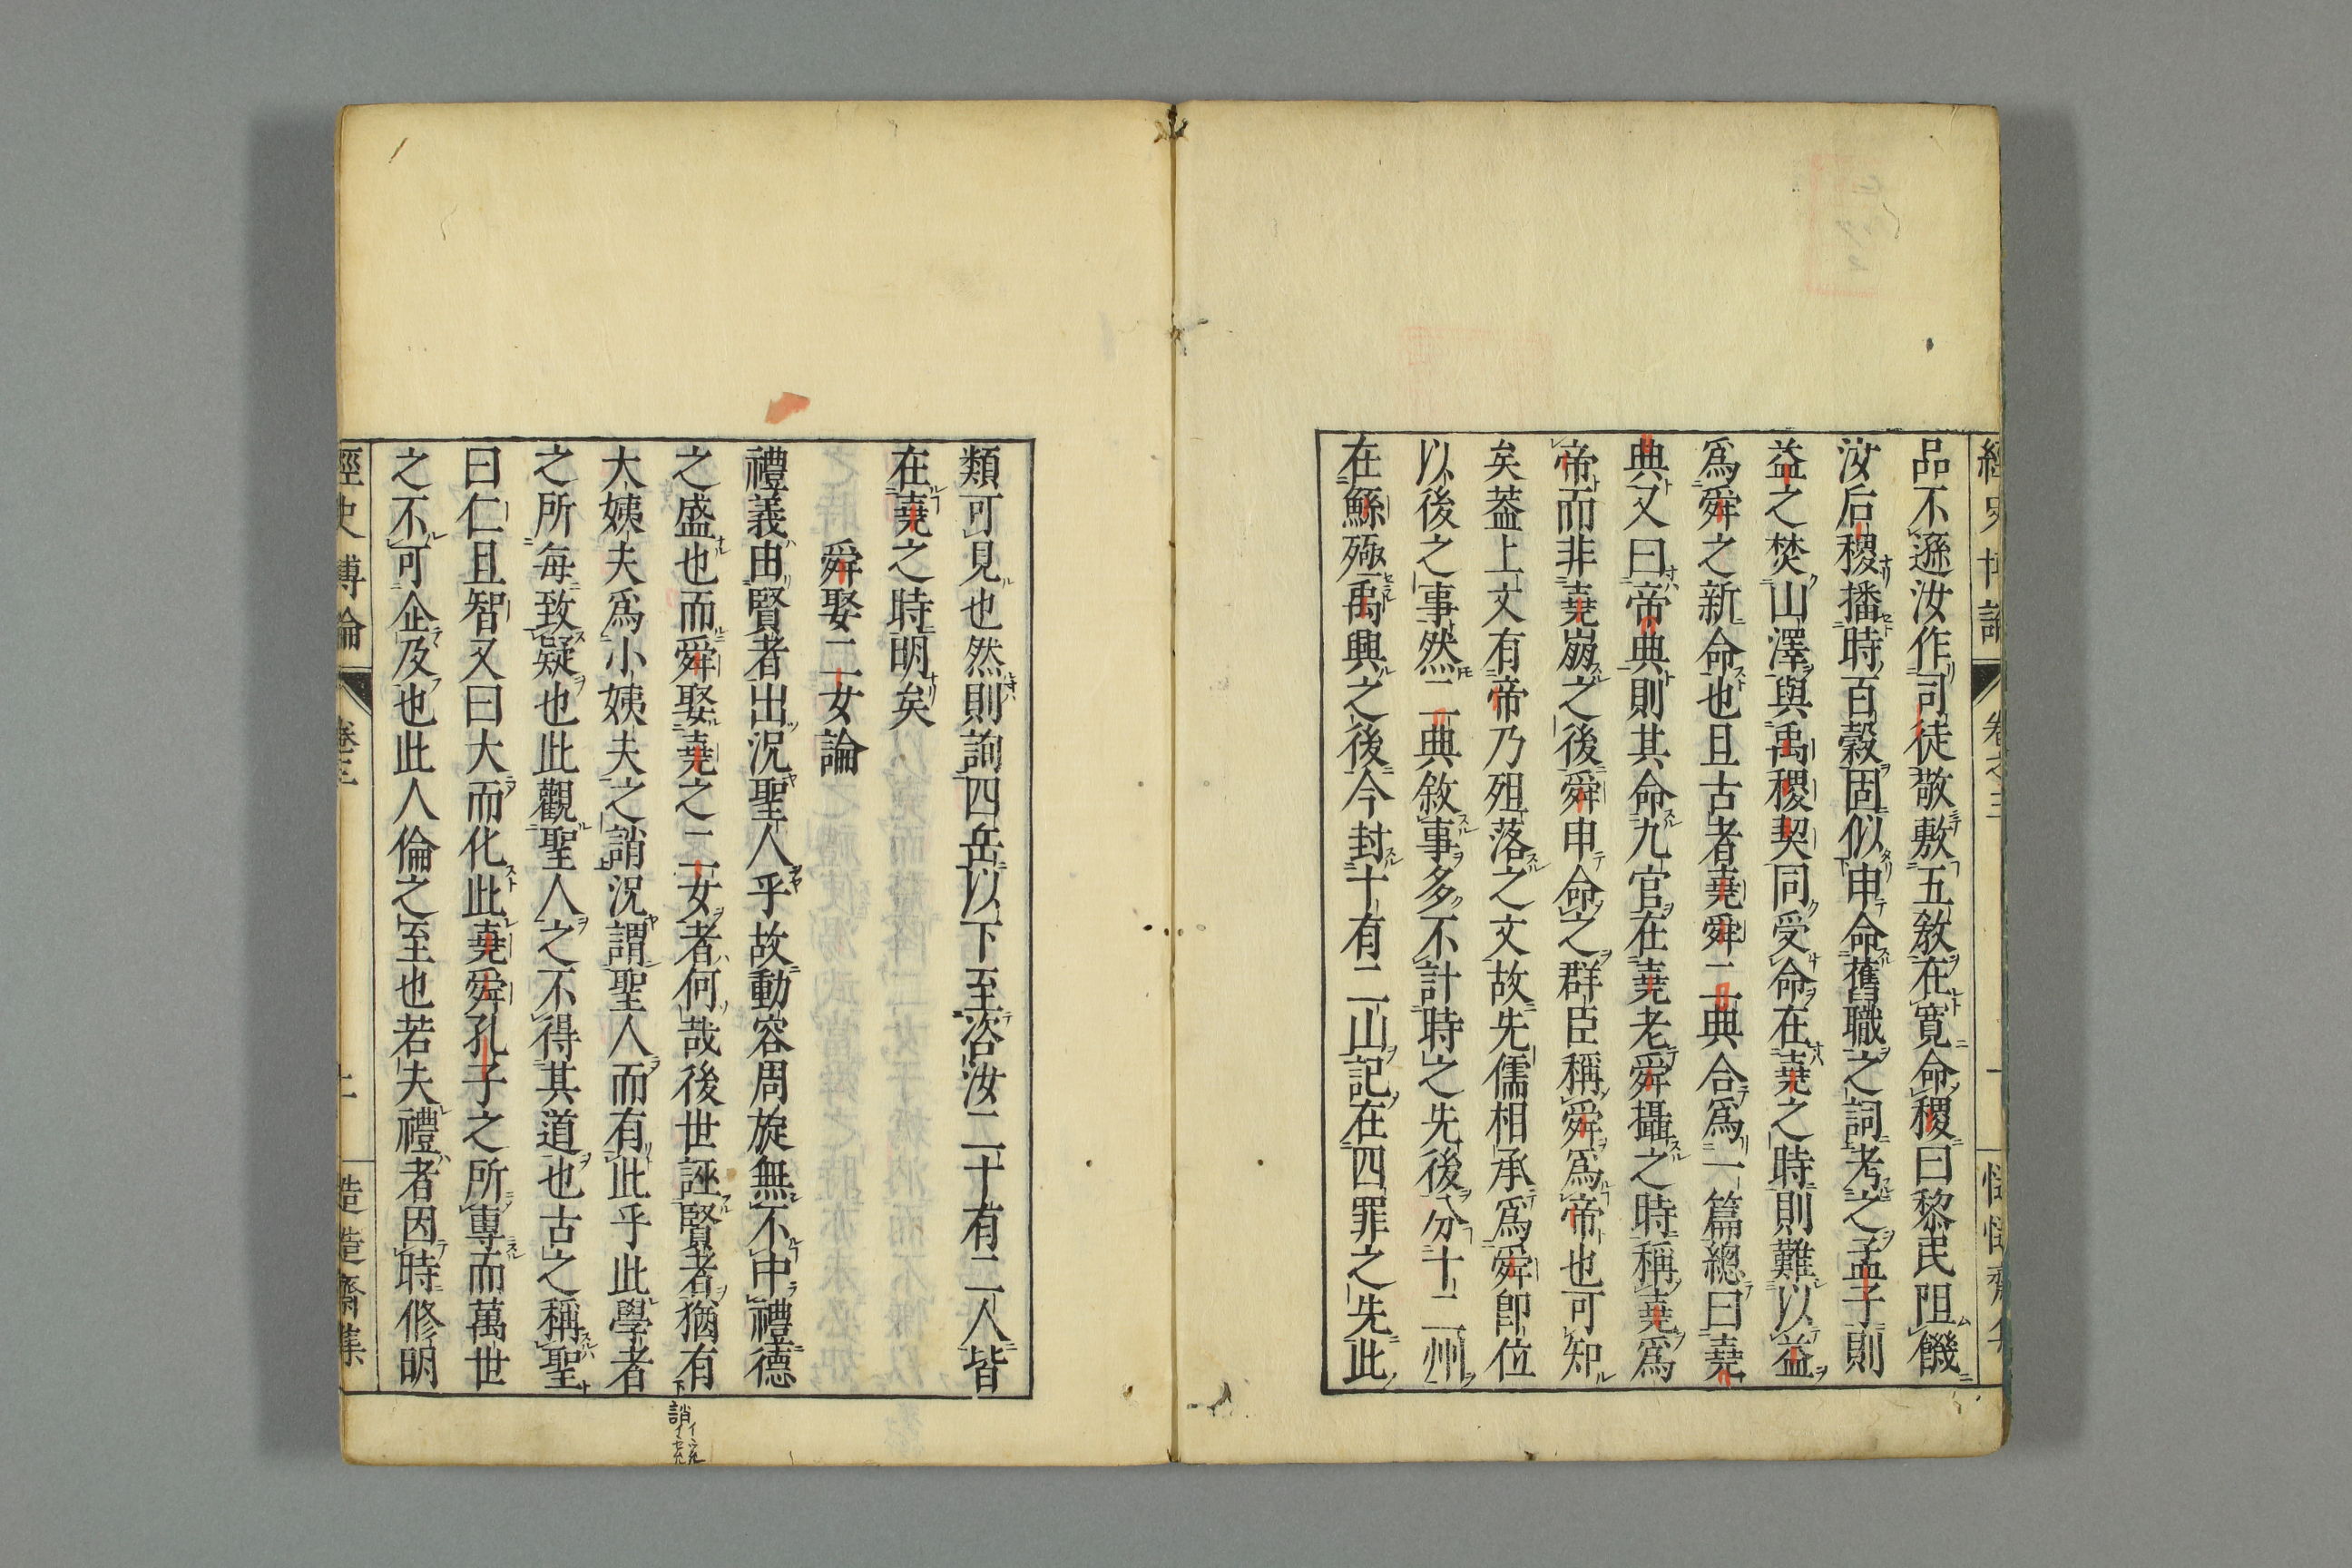 品不遜汝作司徒敬敷五敎在寬命稷曰黎民阻饑
汝后稷播時百穀固似申命舊職之詞考之孟子則
益之焚山澤與禹稷契同受命在堯之時則難以益
爲舜之新命也且古者堯舜二典合爲一篇總曰堯
典又曰帝典則其命九官在堯老舜攝之時稱堯爲
帝而非堯崩之後舜申命之群臣稱舜爲帝也可知
矣蓋上文有帝乃殂落之文故先儒相承爲舜卽位
以後之事然二典敘事多不計時之先後分十二州
在鯀殛禹興之後今封十有二山記在四罪之先此
類可見也然則詢四岳以下至咨汝二十有二人皆
在堯之時明矣
舜娶二女論
禮義由賢者出況聖人乎故動容周旋無不中禮德
之盛也而舜娶堯之二女者何哉後世誣賢者猶有
大姨夫爲小姨夫之誚況謂聖人而有此乎此學者
之所每致疑也此觀聖人之不得其道也古之稱聖
曰仁且智又曰大而化此堯舜孔子之所專而萬世
之不可企及也此人倫之至也若夫禮者因時修明
經史博論
卷三